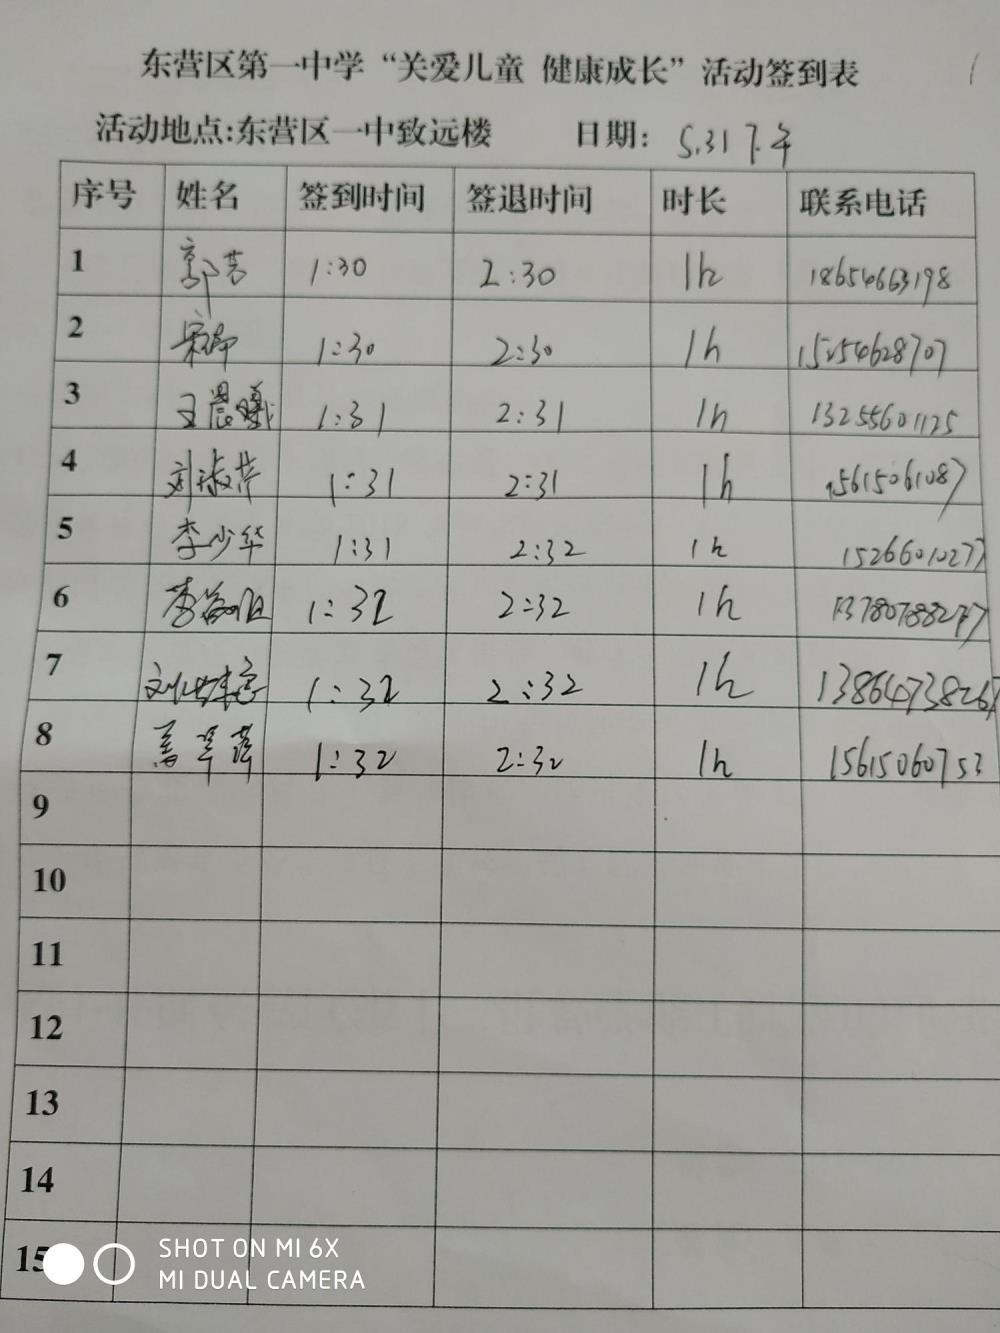 东营区第一中学“关爱儿童 健康成长”活动签到表
活动地点:东营区一中致远楼 日期: 5.31 下午
序号 姓名 签到时间 签退时间 时长 联系电话
1 郭芳 1:30 2:30 1h 18654663198
2 1:30 2:30 1h 15254628707
3 王晨曦 1:31 2:31 1h 13255601125
4 刘淑芹 1:31 2:31 1h 15615061087
5 李少华 1:31 2:32 1h 15266010277
6 1:32 2:32 1h 13780788277
7 1:32 2:32 1h 13864738267
8 1:32 2:32 1h 15615060753
9
10
11
12
13
14
15
SHOT ON MI 6X
MI DUAL CAMERA